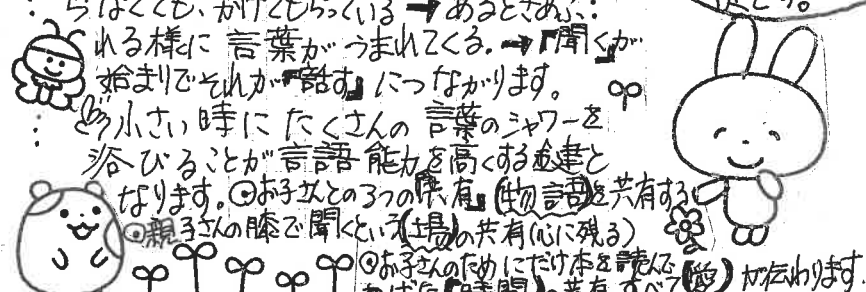 らなくても、かけてもらっている→あるときあふ
れる様に言葉がうまれてくる。→『聞く』が
始まりでそれが『話す』につながります。
小さい時にたくさんの言葉のシャワーを
浴びることが言語能力を高くする鍵と
なります。◎お子さんとの3つの『共有』(物語)を共有する
◎親子さんの膝で聞くという(場)の共有(心に残る)
◎お子さんのためにだけ本を読んで
『時間』の共有 すべて(愛)が伝わります